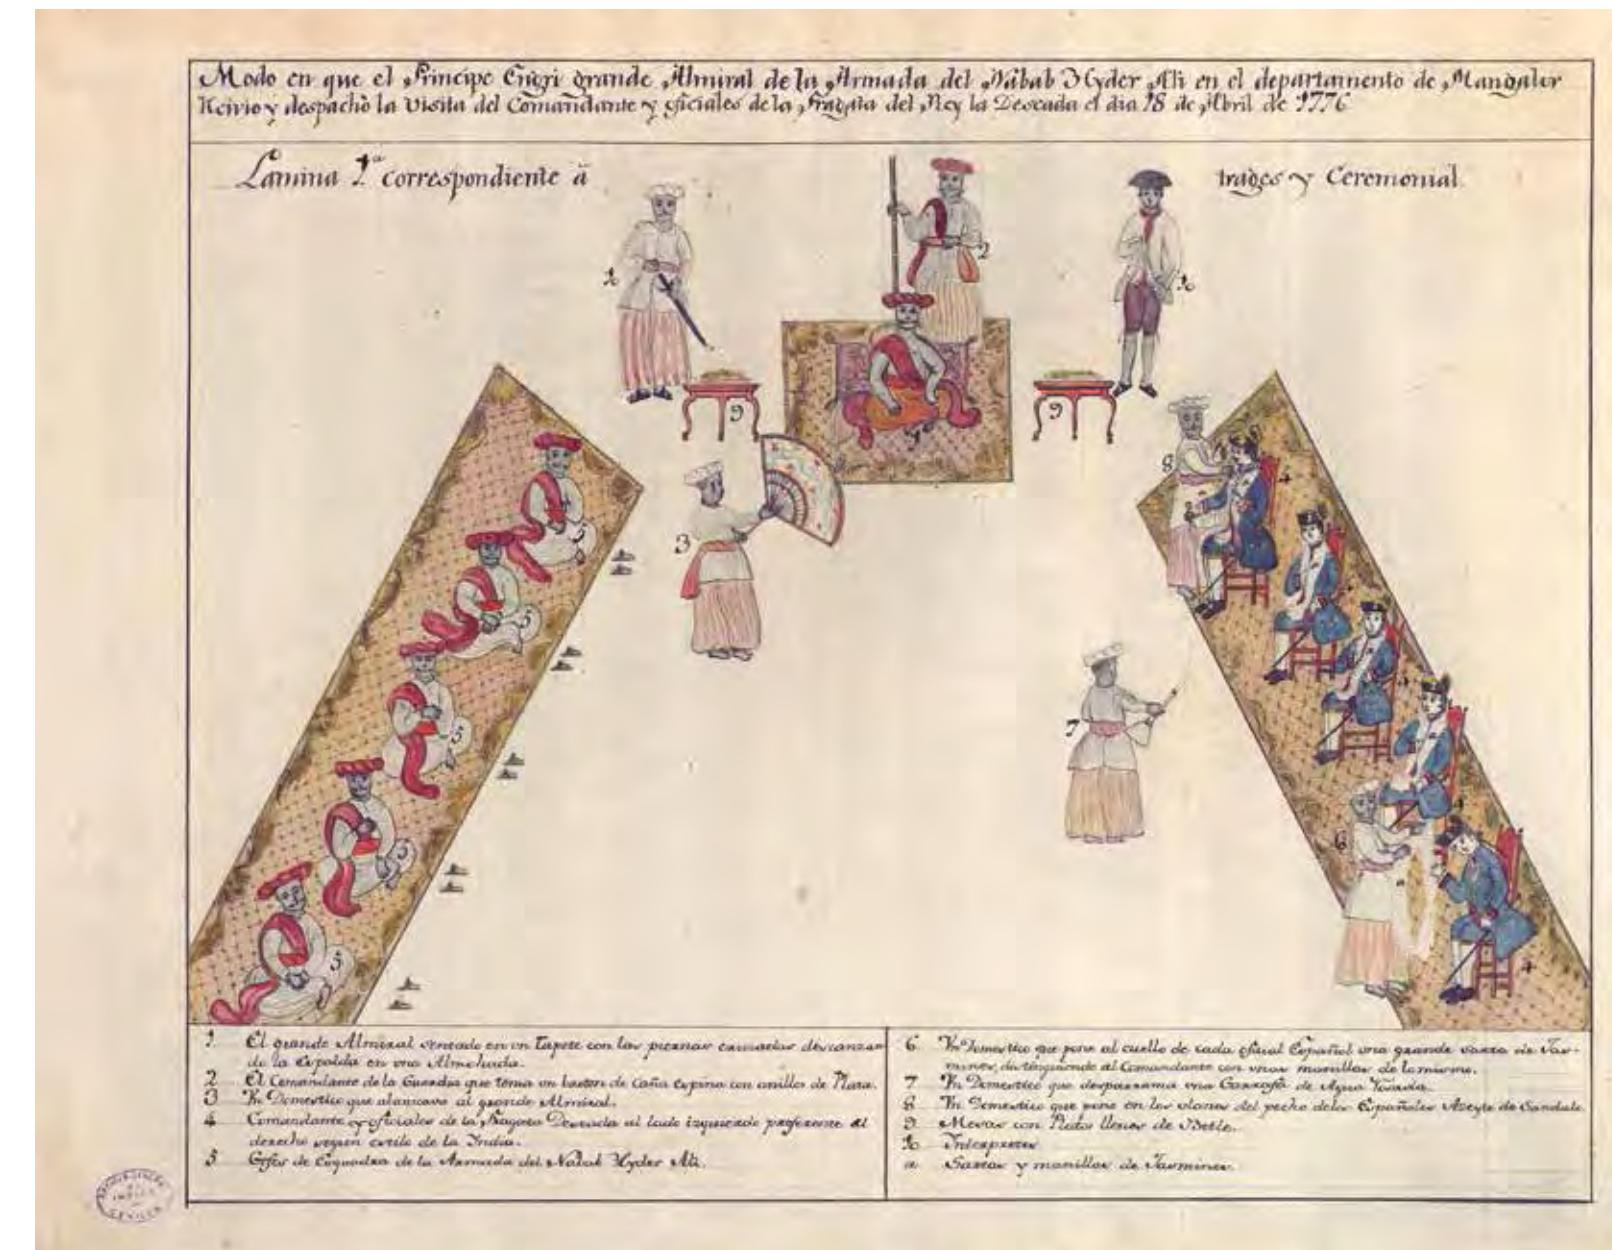 Modo en que el Principe Crigri grande Almiral de la Armada del Nabab Hyder Ali en el departamento de Mangaler
Recivio y despachò la Visita del Comandante y oficiales de la Fragata del Rey la Deseada el dia 18 de Abril de 1776
Lamina 1.ª correspondiente â trages y Ceremonial
10
2
10
9
9
1
8
4
5
3
5
4
5
7
5
6
a
5
4
1 El grande Almiral sentado en un Tapete con las piernas cruzadas descanzando
de la Espalda en una Almohada.
2 El Comandante de la Guardia que toma un baston de Caña espina con anillos de Plata.
3 Un Domestico que abanicava al grande Almiral.
4 Comandante y oficiales de la Fragata Deseada al lado izquierdo preferente al
derecho segun estilo de la India.
5 Gefes de Esquadra de la Armada del Nabab Hyder Ali.
6 Un Domestico que pone al cuello de cada oficial Español una grande sarta de Jas-
mines, distinguiendo al Comandante con unas manillas de lo mismo.
7 Un Domestico que desparrama una Garrafa de Agua Rosada.
8 Un Domestico que pone en los olanes del pecho delos Españoles Azeyte de Sandalo
9 Mesas con Platos llenos de Betle.
10 Interpretes
a Sartas y manillas de Jasmines.
INDIAS
SEVILLA